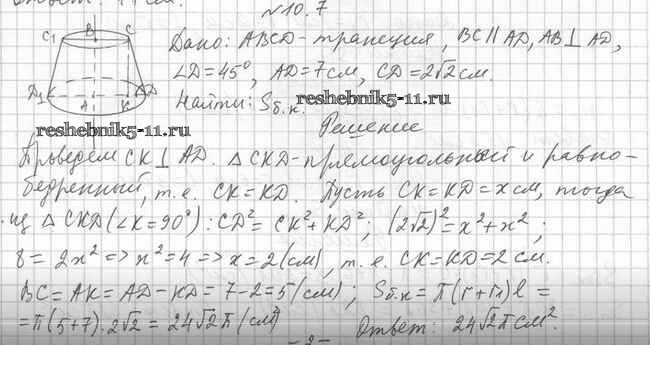 №10.7
C₁ B C
Дано: ABCD-трапеция, BC∥AD, AB⊥AD,
∠D=45°, AD=7см, CD=2√2 см.
D₁ A K D
Найти: Sб.к.
reshebnik5-11.ru
reshebnik5-11.ru
Решение
Проведем CK⊥AD. △CKD-прямоугольный и равно-
бедренный, т.е. CK=KD. Пусть CK=KD=x см, тогда
из △CKD(∠K=90°): CD²=CK²+KD²; (2√2)²=x²+x²;
8=2x²=>x²=4=>x=2(см), т.е. CK=KD=2см.
BC=AK=AD-KD=7-2=5(см); Sб.к=π(r+r₁)l=
=π(5+7)·2√2=24√2π(см²) Ответ: 24√2π см².